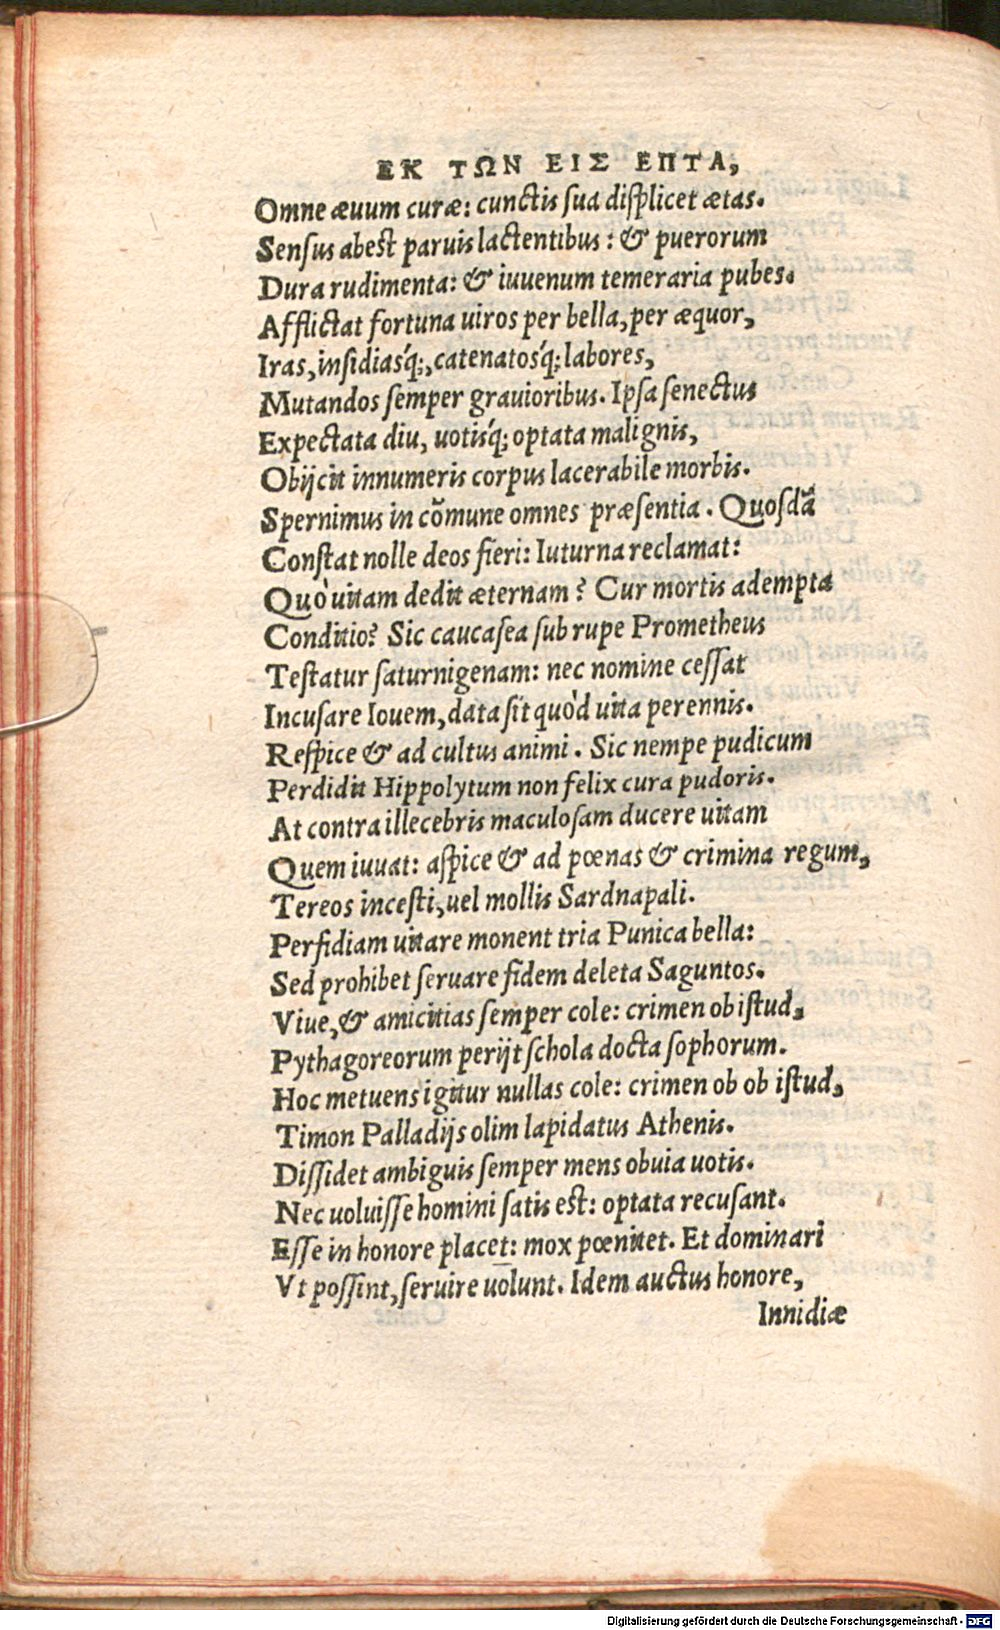 ΕΚ ΤΩΝ ΕΙΣ ΕΠΤΑ,
Omne æuum curæ: cunctis ſua diſplicet ætas.
Senſus abeſt paruis lactentibus: & puerorum
Dura rudimenta: & iuuenum temeraria pubes.
Afflictat fortuna uiros per bella, per æquor,
Iras, inſidiasq́;, catenatosq́; labores,
Mutandos ſemper grauioribus. Ipſa ſenectus
Expectata diu, uotisq́; optata malignis,
Obijcit innumeris corpus lacerabile morbis.
Spernimus in cõmune omnes præſentia. Quoſdã
Conſtat nolle deos fieri: Iuturna reclamat:
Quò uitam dedit æternam? Cur mortis adempta
Conditio? Sic caucaſea ſub rupe Prometheus
Teſtatur ſaturnigenam: nec nomine ceſſat
Incuſare Iouem, data ſit quòd uita perennis.
Reſpice & ad cultus animi. Sic nempe pudicum
Perdidit Hippolytum non felix cura pudoris.
At contra illecebris maculoſam ducere uitam
Quem iuuat: aſpice & ad pœnas & crimina regum,
Tereos inceſti, uel mollis Sardnapali.
Perfidiam uitare monent tria Punica bella:
Sed prohibet ſeruare fidem deleta Saguntos.
Viue, & amicitias ſemper cole: crimen ob iſtud,
Pythagoreorum perijt ſchola docta ſophorum.
Hoc metuens igitur nullas cole: crimen ob ob iſtud,
Timon Palladijs olim lapidatus Athenis.
Diſſidet ambiguis ſemper mens obuia uotis.
Nec uoluiſſe homini ſatis eſt: optata recuſant.
Eſſe in honore placet: mox pœnitet. Et dominari
Vt poſſint, ſeruire uolunt. Idem auctus honore,
Innidiæ
Digitalisierung gefördert durch die Deutsche Forschungsgemeinschaft - DFG